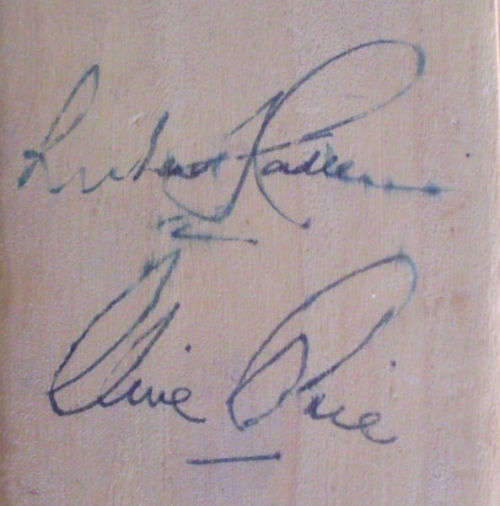 Richard Hadlee
Clive Rice